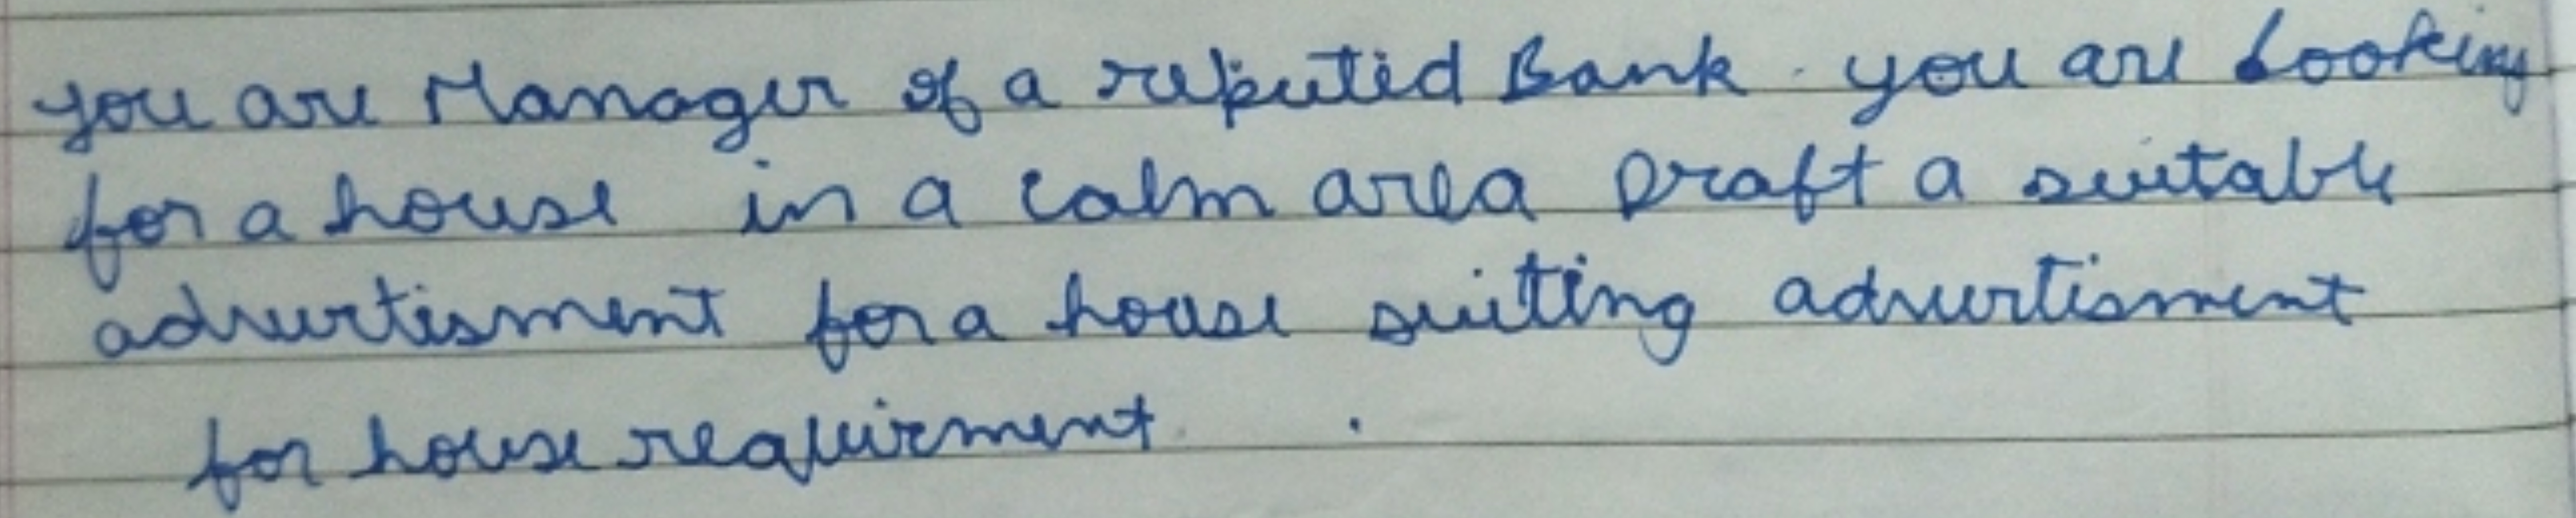 you are Manager of a reputed Bank. you are Looking
for a house in a calm area Draft a suitable
advertisment for a house suiting advertisment
for house requirment.